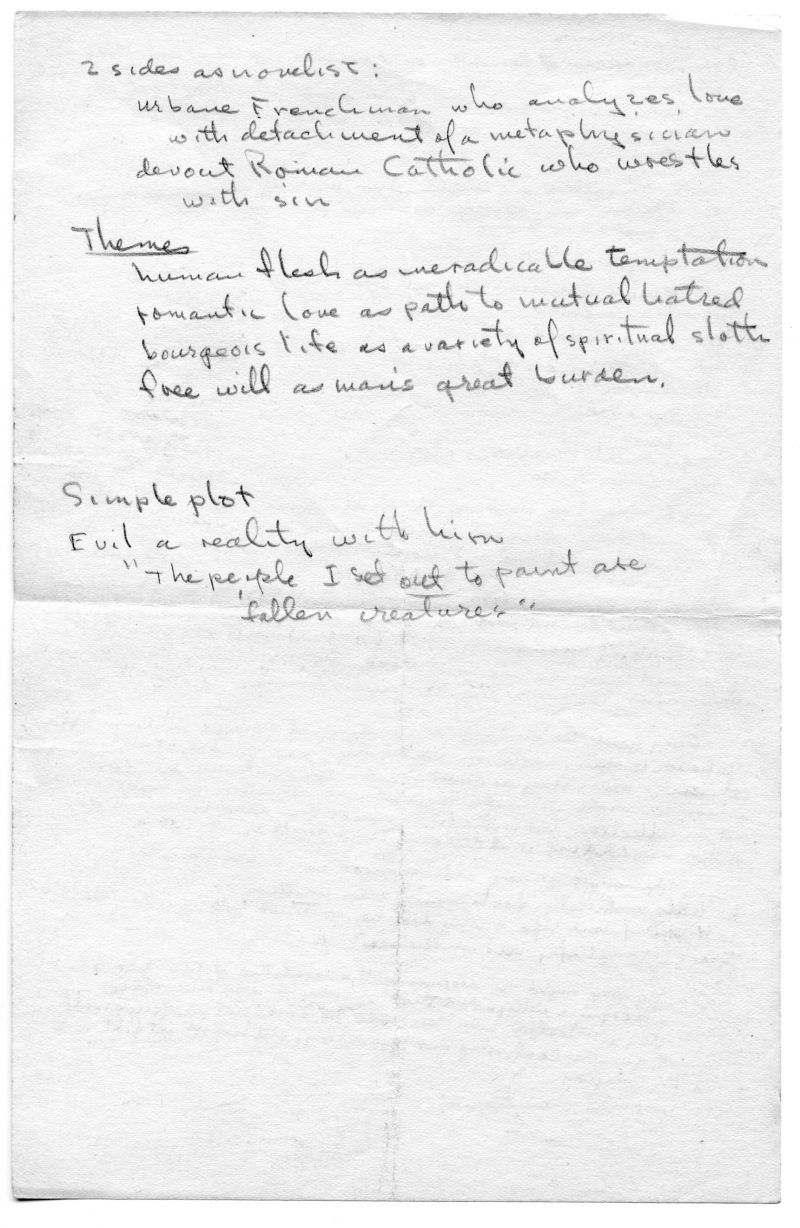 2 sides as novelist:
urbane Frenchman who analyzes love
with detachment of a metaphysician
devout Roman Catholic who wrestles
with sin
Themes
human flesh as ineradicable temptation
romantic love as path to mutual hatred
bourgeois life as a variety of spiritual sloth
free will as man's great burden.
Simple plot
Evil a reality with him
"The people I set out to paint are
fallen creatures"